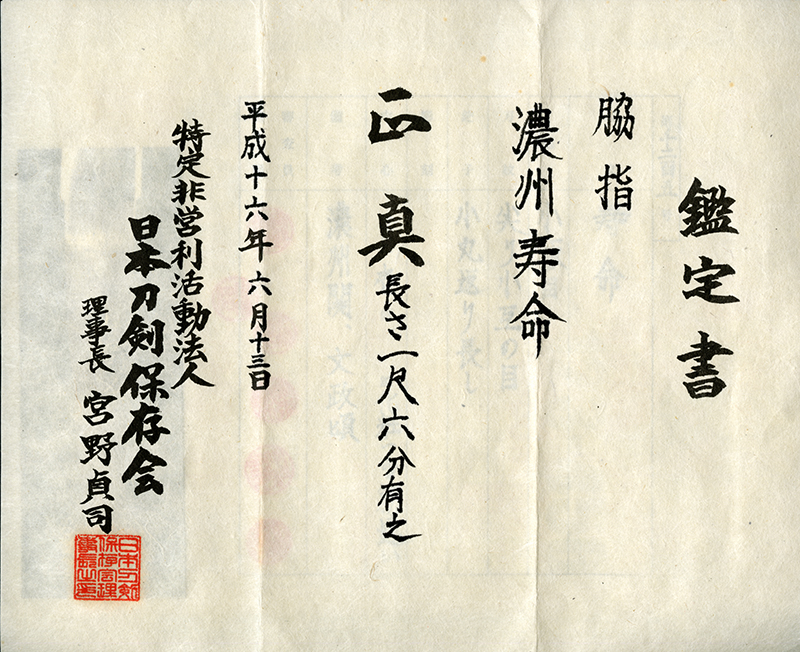 鑑定書
脇指
濃州寿命
正真 長さ一尺六分有之
平成十六年六月十三日
特定非営利活動法人
日本刀剣保存会
理事長 宮野貞司
日本刀剣保存会理事長之印